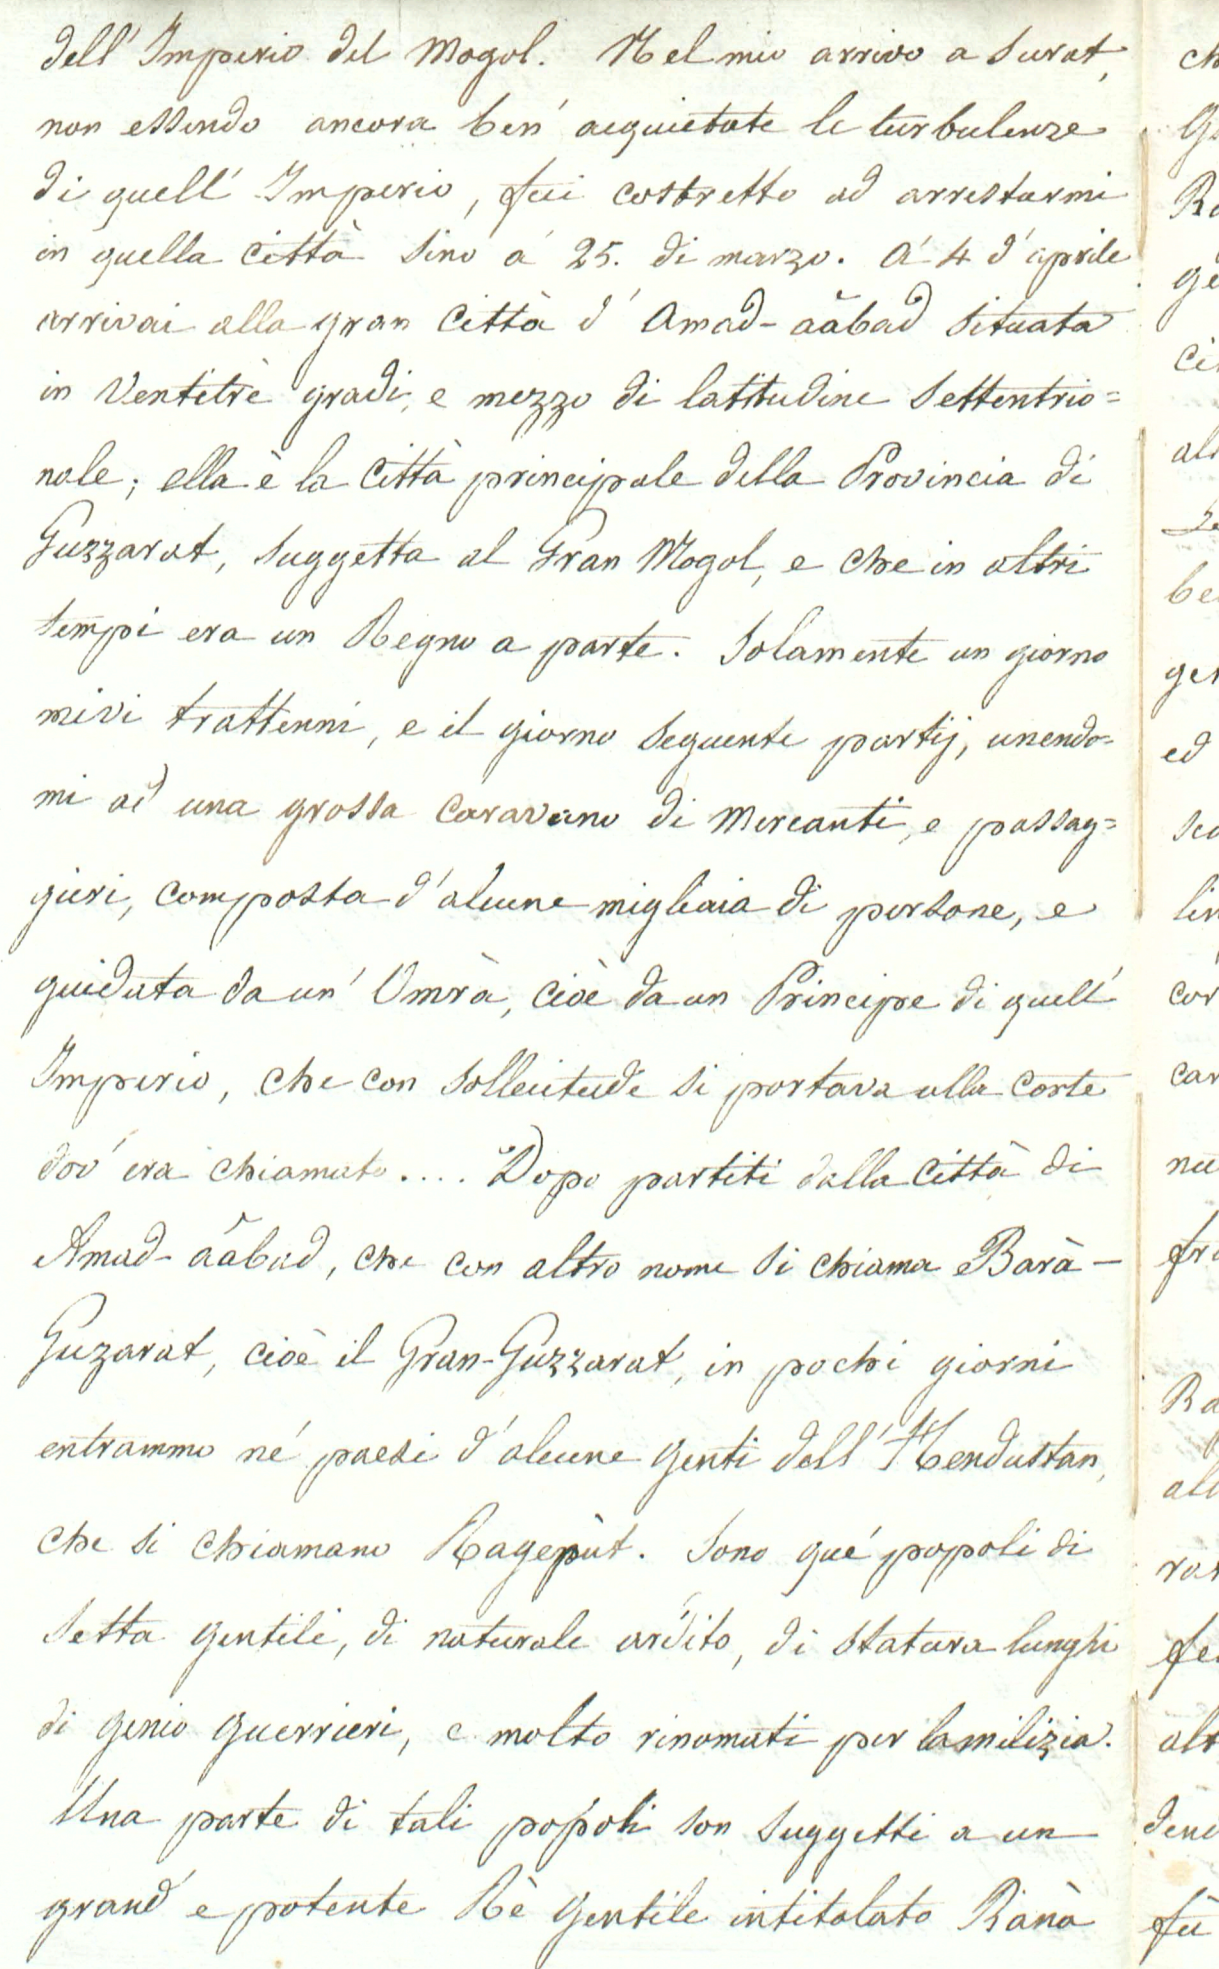 dell' Imperio del Mogol. Nel mio arrivo a Surat,
non essendo ancora ben' acquietate le turbulenze
di quell' Imperio, fui costretto ad arrestarmi
in quella Città sino a' 25. di marzo. A' 4 d'aprile
arrivai alla gran Città d' Amad-aâbad situata
in Ventitrè gradi, e mezzo di latitudine Settentrio=
nale; ella è la Città principale della Provincia di
Guzzarat, suggetta al Gran Mogol, e che in altri
tempi era un Regno a parte. Solamente un giorno
mi vi trattenni, e il giorno seguente partij, unendo-
mi ad una grossa Caravana di Mercanti, e passag=
gieri, composta d'alcune migliaia di persone, e
guidata da un' Umrà, cioè da un Principe di quell'
Imperio, che con sollecitude si portava alla Corte
dov' era chiamato.... Dopo partiti dalla Città di
Amad-aâbad, che con altro nome si chiama Barà-
Guzarat, cioè il Gran-Guzzarat, in pochi giorni
entrammo né paesi d'alcune genti dell' Hendustan,
che si chiamano Ragepùt. Sono qué popoli di
setta gentili, di naturale ardito, di statura lunghi
di genio guerrieri, e molto rinomati per la milizia.
Una parte di tali popoli son suggetti a un
grand' e potente Rè gentile intitolato Rànà